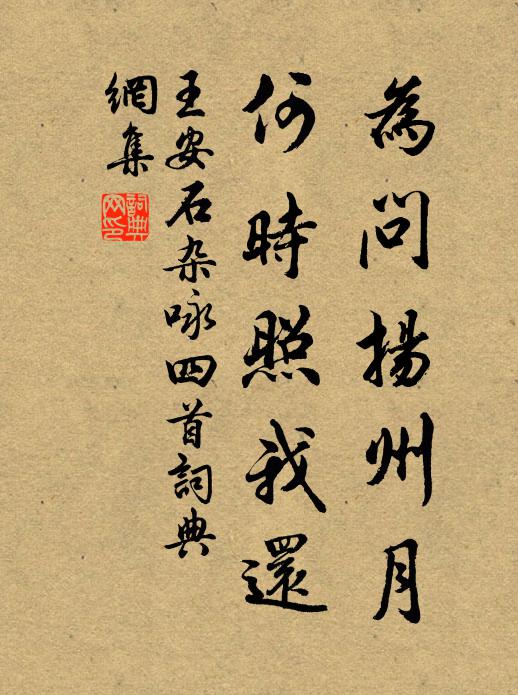 為問揚州月
何時照我還
王安石杂咏四首詞典
網集
詞典网印